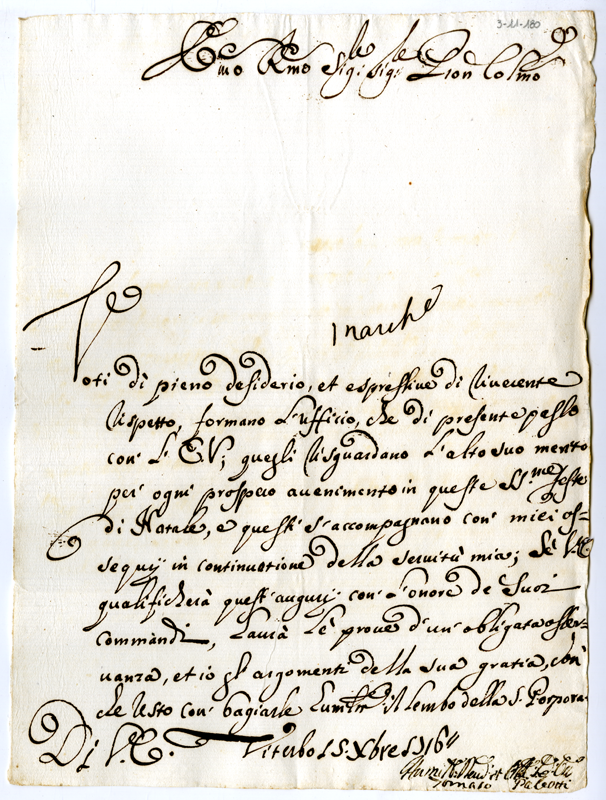 3-11-180
Emo Rmo Sig.r Sig.r Pron Colmo
Voti di pieno desiderio, et espressive di riverente
rispetto, formano l'ufficio, che di presente passo
con' l'E.V.; quegli risguardano l'alto suo merito
per ogni prospero avenimento in queste SS.me feste
di Natale, e questi s'accompagnano con' miei os=
sequij in continuatione della servitù mia; Se V.E.
qualificherà questi augurij con' l'onore de suoi
commandi, haurà le prove d'un'obligata osser=
vanza, et io gli argomenti della sua gratia, con'
che resto con' bagiarle hum.te il lembo della S. Porpora.
Di V.E. Viterbo 15. Xbre